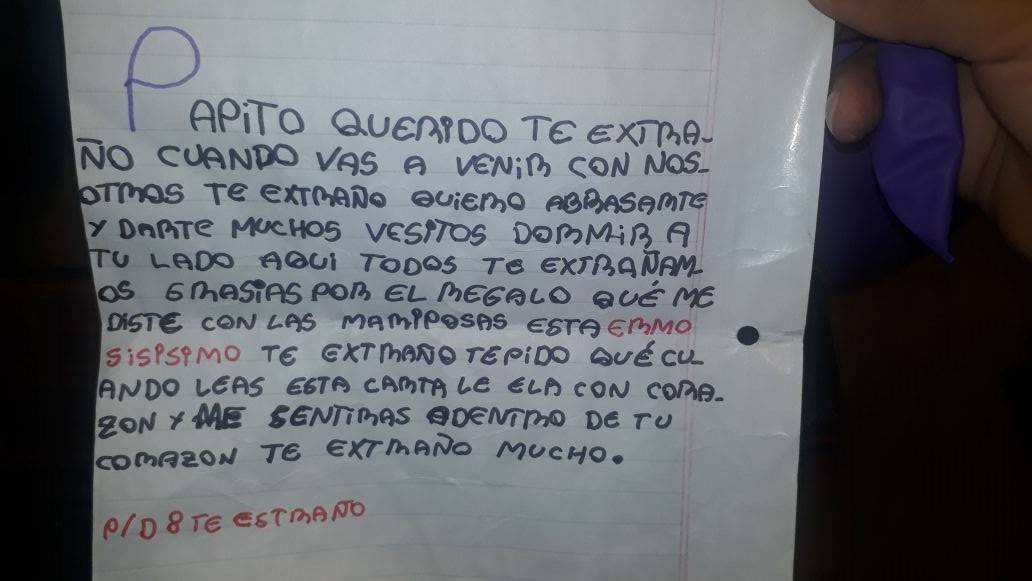 PAPiTO QUERIDO TE EXTRA-
ÑO CUANDO VAS A VENiR CON NOS-
OTROS TE EXTRAÑO QUiERO ABRASARTE
Y DARTE MUCHOS VESITOS DORMiR A
TU LADO AQUi TODOS TE EXTRAÑAM
OS GRASiAS POR EL REGALO QUÉ ME
DISTE CON LAS MARIPOSAS ESTA ERMO
SiSISIMO TE EXTRAÑO TEPiDO QUÉ CU
ANDO LEAS ESTA CARTA LE ELA CON CORA-
ZON Y ME SENTIRAS ADENTRO DE TU
CORAZON TE EXTRAÑO MUCHO.
P/D 8 TE ESTRAÑO